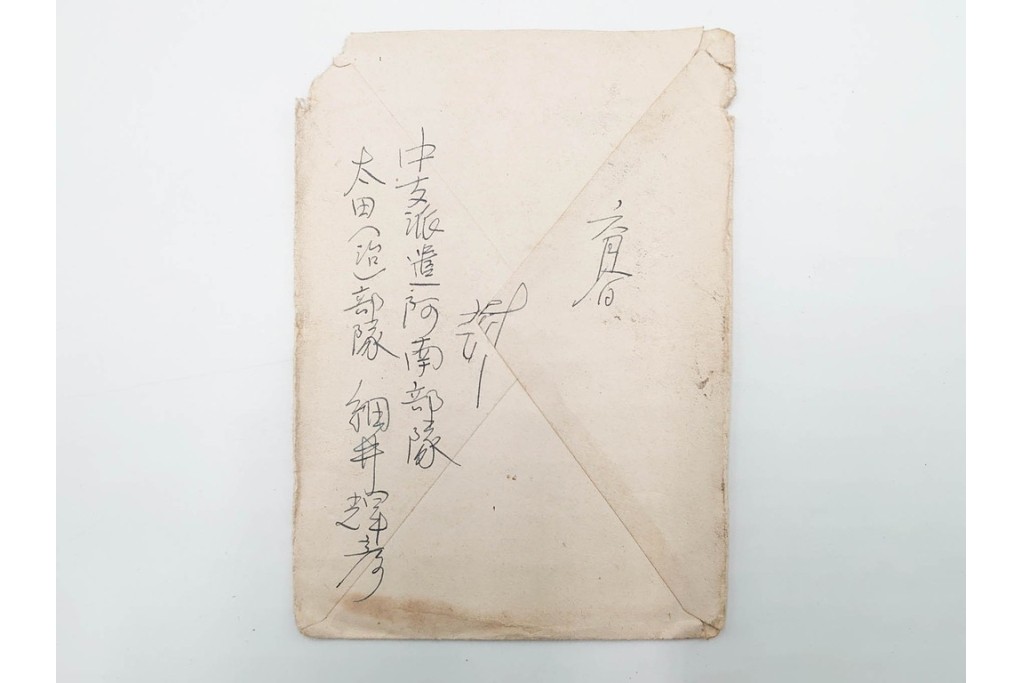 六月日
封
中支派遣阿南部隊
太田(治)部隊 細井輝彦